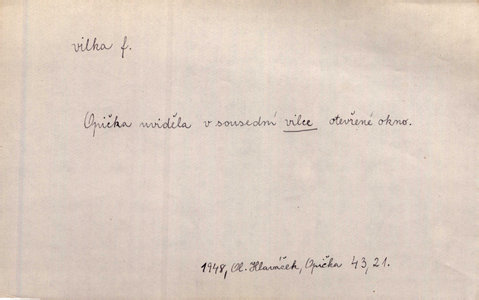 vilka f.
Opička uviděla v sousední vilce otevřené okno.
1948, Ol. Hlaváček, Opička 43, 21.